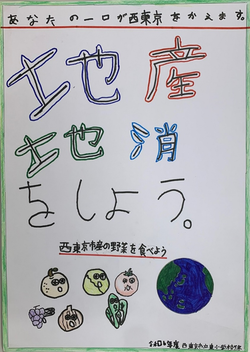 あなたの一口が西東京をかえます。
地産
地消
をしよう。
西東京市産の野菜を食べよう